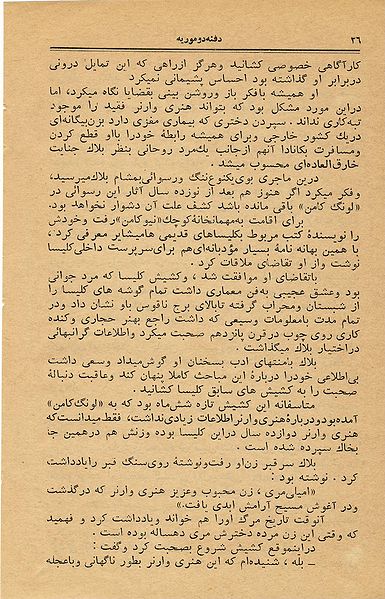 ۲۶
دفنه دوموریه
کارآگاهی خصوصی کشانید وهرگز ازراهی که این تمایل درونی
دربرابر او گذاشته بود احساس پشیمانی نمیکرد
او همیشه بافکر باز وروشن بینی بقضایا نگاه میکرد، اما
دراین مورد مشکل بود که بتواند هنری وارنر فقید را موجود
تبه‌کاری نداند . سپردن دختری که بیماری مغزی دارد بزن بیگانه‌ای
دریك کشور خارجی وبرای همیشه رابطهٔ خودرا بااو قطع کردن
ومسافرت بکانادا آنهم ازجانب یك‌مرد روحانی بنظر بلاك جنایت
خارق‌العاده‌ای محسوب میشد .
درین ماجری بوی‌یکنوع‌ننگ ورسوائی‌بمشام بلاك‌میرسید،
وفکر میکرد اگر هنوز هم بعد از نوزده سال آثار این رسوائی در
«لونگ کامن» باقی مانده باشد کشف علت آن دشوار نخواهد بود.
برای اقامت به‌مهمانخانهٔ کوچك«نیوکامن»رفت وخودش
را نویسندهٔ کتب مربوط بکلیساهای قدیمی هامپشایر معرفی کرد،
با همین بهانه نامهٔ بسیار مؤدبانه‌ای‌هم برای‌سرپرست داخلی‌کلیسا
نوشت واز او تقاضای ملاقات کرد .
باتقاضای او موافقت شد ، وکشیش کلیسا که مرد جوانی
بود وعشق عجیبی به‌فن معماری داشت تمام گوشه های کلیسا را
از شبستان ومحراب گرفته تابالای برج ناقوس باو نشان داد ودر
تمام مدت بامعلومات وسیعی که داشت راجع بهنر حجاری وکنده
کاری روی چوب درقرن پانزدهم صحبت میکرد واطلاعات گرانبهائی
دراختیار بلاك میگذاشت .
بلاك بامنتهای ادب بسخنان او گوش‌میداد وسعی داشت
بی‌اطلاعی خودرا دربارهٔ این مباحث کاملا پنهان کند وعاقبت دنبالهٔ
صحبت را به کشیش های سابق کلیسا کشانید .
متاسفانه این کشیش تازه شش‌ماه بود که به «لونگ‌کامن»
آمده‌بودودربارهٔ‌هنری‌وارنراطلاعات زیادی‌نداشت، فقط میدانست‌که
هنری وارنر دوازده سال دراین کلیسا بوده وزنش هم درهمین جا
بخاك سپرده شده است .
بلاك سرقبر زن‌او رفت‌ونوشتهٔ روی‌سنگ قبر رایادداشت
کرد . نوشته بود :
«امیلی‌مری ، زن محبوب وعزیز هنری وارنر که درگذشت
ودر آغوش مسیح آرامش ابدی یافت.»
آنوقت تاریخ مرگ اورا هم خواند ویادداشت کرد و فهمید
که وقتی این زن مرده دخترش مری ده‌ساله بوده است .
دراینموقع کشیش شروع بصحبت کرد وگفت :
ـ بله ، شنیده‌ام که این هنری وارنر بطور ناگهانی وباعجله